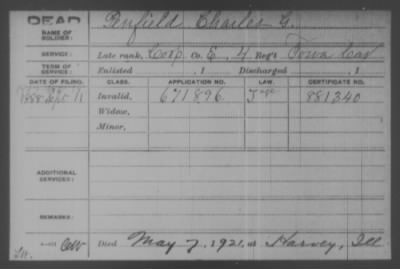 DEAD
NAME OF SOLDIER: Enfield Charles G.
SERVICE: Late rank, Corp Co. E, 4 Reg't Iowa Cav
TERM OF SERVICE: Enlisted , 1 Discharged , 1
DATE OF FILING. CLASS. APPLICATION NO. CERTIFICATE NO.
1888 Sept 11 Invalid, 671896 881340
Widow,
Minor,
ADDITIONAL SERVICES:
REMARKS:
Died May 7, 1921, at Harvey, Ill